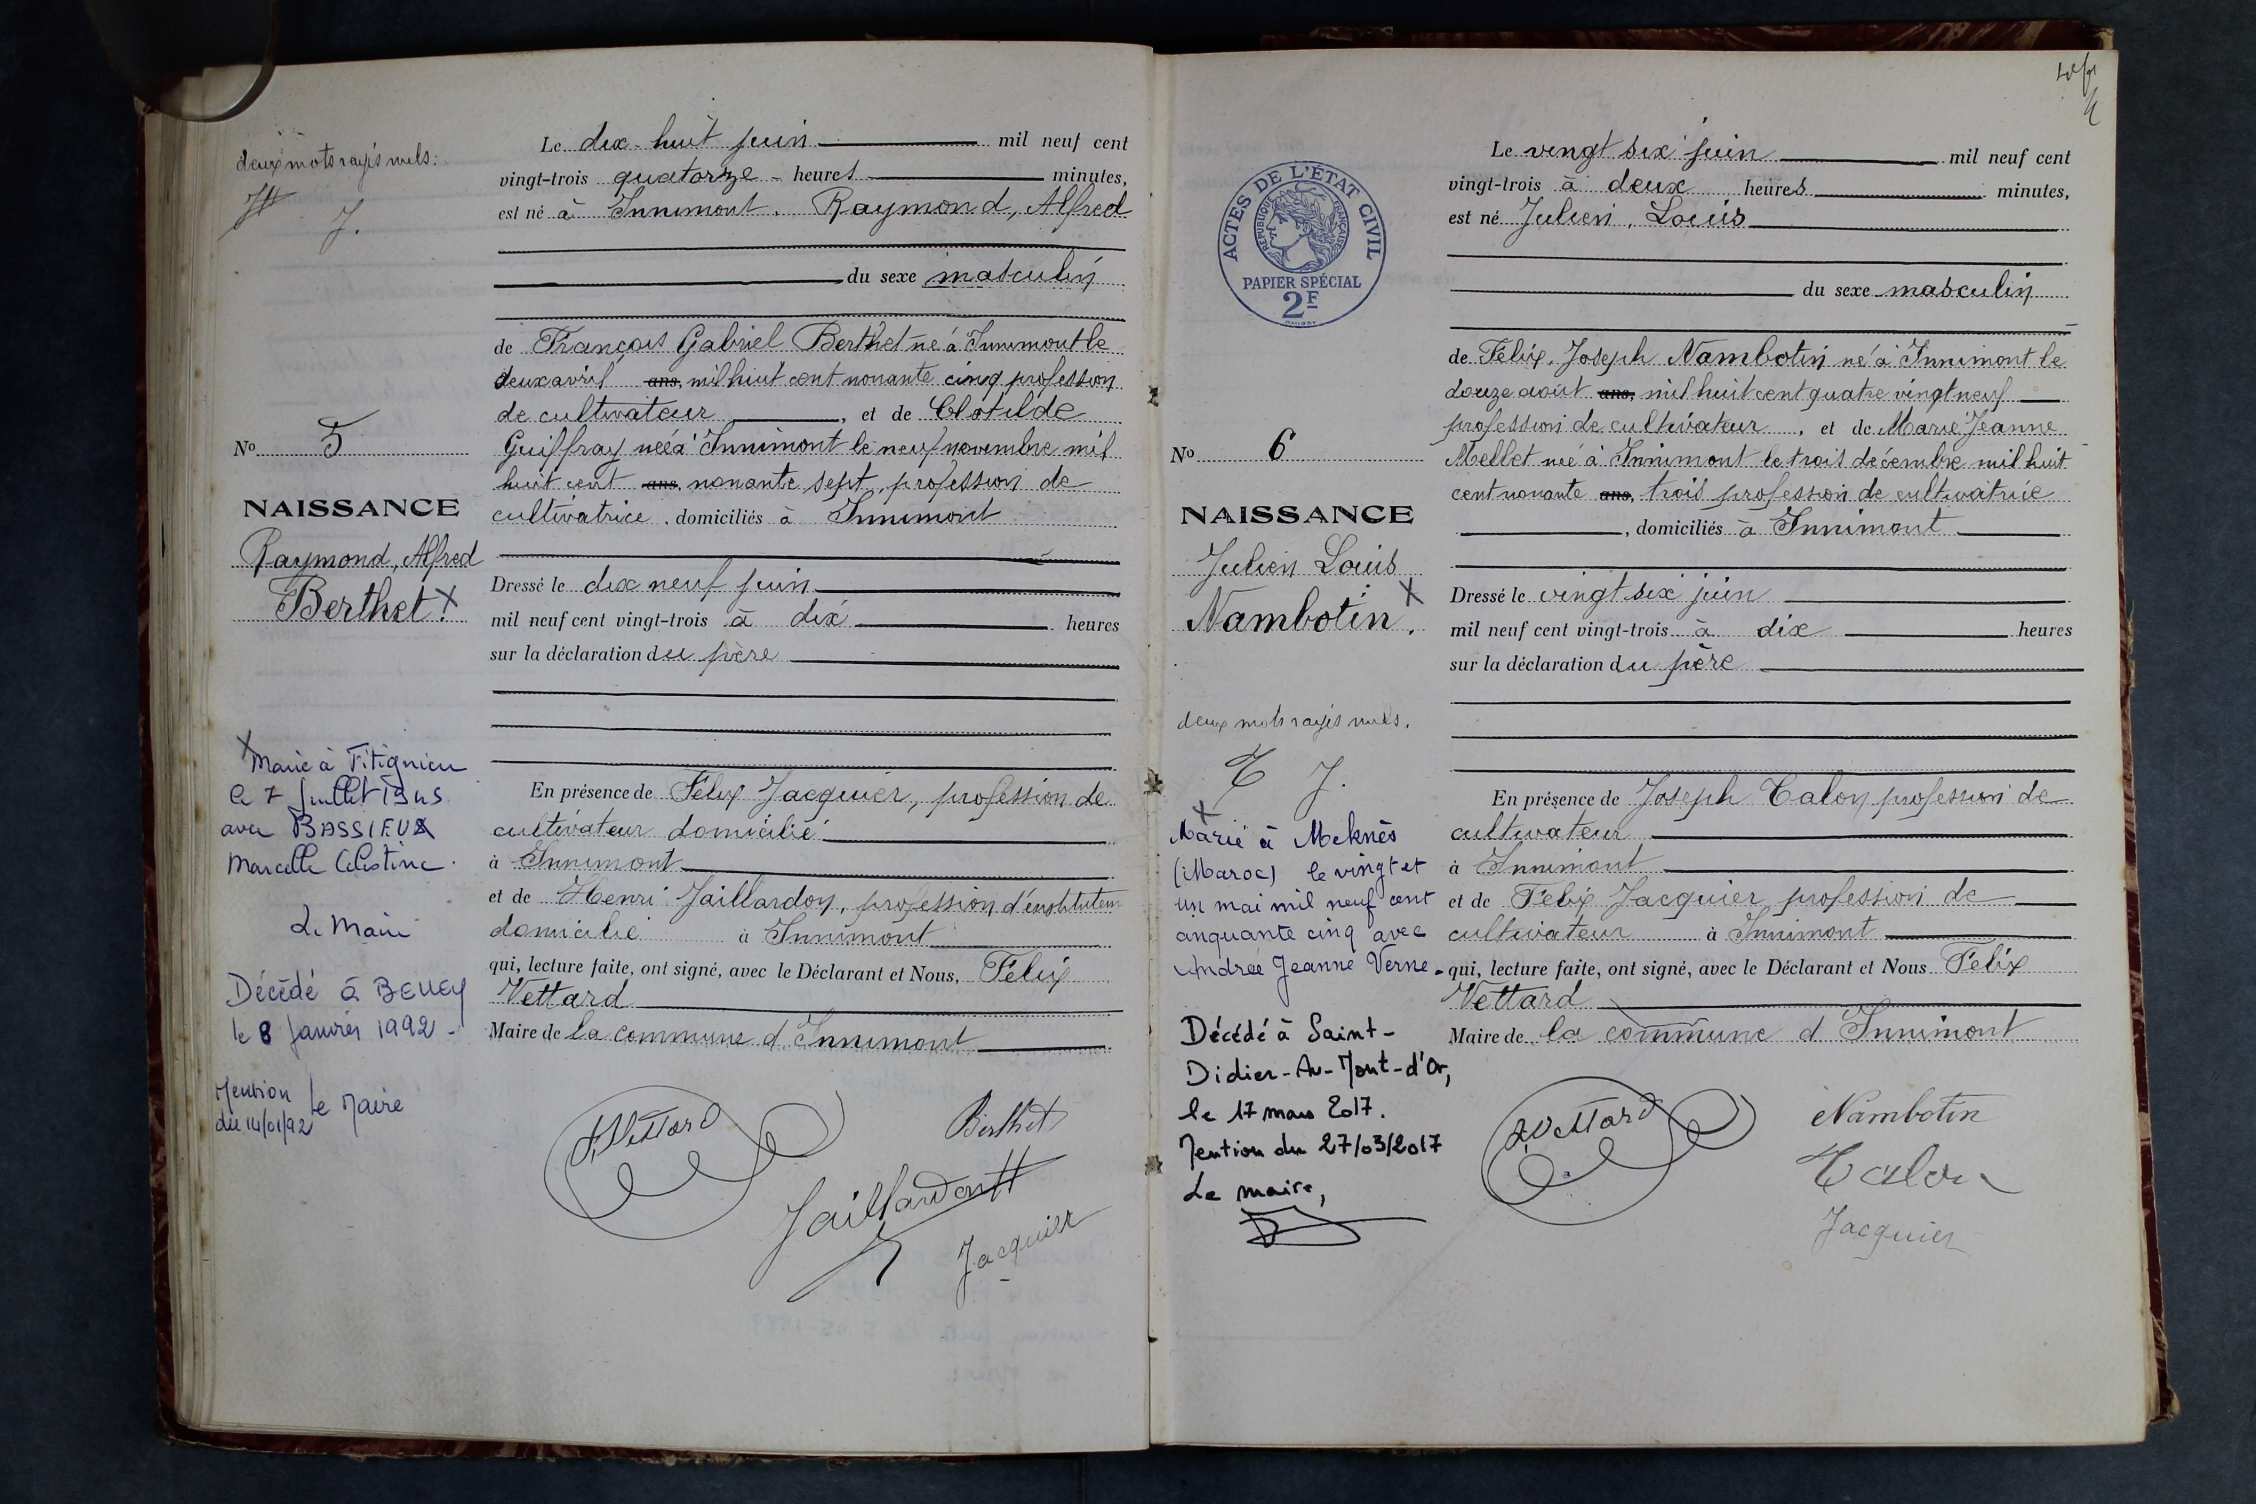 deux mots rayés nuls:
J.
No 5
NAISSANCE
Raymond, Alfred
Berthet X
X
Marié à Fitignieu
le 7 Juillet 1945
avec BASSIEUX
Marcelle Célestine.
Le Maire
Décédé à BELLEY
le 8 Janvier 1992 -
Mention
du 14/01/92
Le Maire
Le dix-huit juin mil neuf cent
vingt-trois quatorze - heures minutes,
est né à Innimont. Raymond, Alfred
du sexe masculin
de François Gabriel Berthet né à Innimont le
deux avril ans, mil huit cent nonante cinq profession
de cultivateur , et de Clotilde
Guiffray née à Innimont le neuf novembre mil
huit cent ans, nonante sept, profession de
cultivatrice, domiciliés à Innimont
Dressé le dix neuf juin
mil neuf cent vingt-trois à dix heures
sur la déclaration du père
En présence de Félix Jacquier, profession de
cultivateur domicilié
à Innimont
et de Henri Jaillardon, profession d'instituteur
domicilié à Innimont
qui, lecture faite, ont signé, avec le Déclarant et Nous, Félix
Vettard
Maire de la commune d'Innimont
F Vettard
Berthet
Jaillardon
Jacquier
ACTES DE L'ÉTAT CIVIL
RÉPUBLIQUE FRANÇAISE
PAPIER SPÉCIAL
2F
No 6
NAISSANCE
Julien Louis
Nambotin. X
deux mots rayés nuls.
T J.
X
Marié à Meknès
(Maroc) le vingt et
un mai mil neuf cent
cinquante cinq avec
Andrée Jeanne Verne.
Décédé à Saint-
Didier-Au-Mont-d'Or,
le 17 mars 2017.
Mention du 27/03/2017
Le maire,
Le vingt six juin mil neuf cent
vingt-trois à deux heures minutes,
est né Julien, Louis
du sexe masculin
de Félix, Joseph Nambotin né à Innimont le
douze août ans, mil huit cent quatre vingt neuf
profession de cultivateur , et de Marie Jeanne
Mellet née à Innimont le trois décembre mil huit
cent nonante ans, trois profession de cultivatrice
, domiciliés à Innimont
Dressé le vingt six juin
mil neuf cent vingt-trois à dix heures
sur la déclaration du père
En présence de Joseph Talon profession de
cultivateur
à Innimont
et de Félix Jacquier profession de
cultivateur à Innimont
qui, lecture faite, ont signé, avec le Déclarant et Nous Félix
Vettard
Maire de la commune d'Innimont
F Vettard
Nambotin
Talon
Jacquier